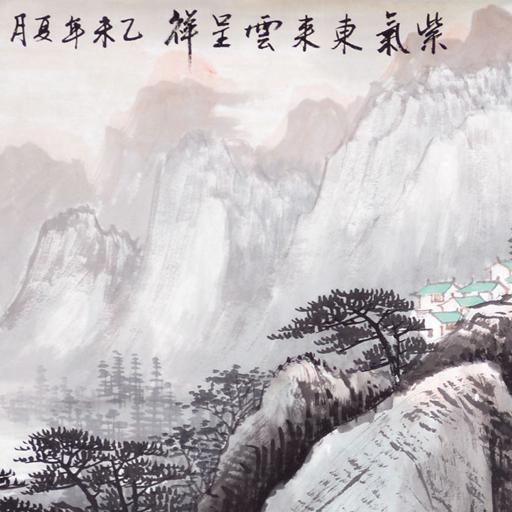 紫氣東来雲呈祥 乙未年夏月